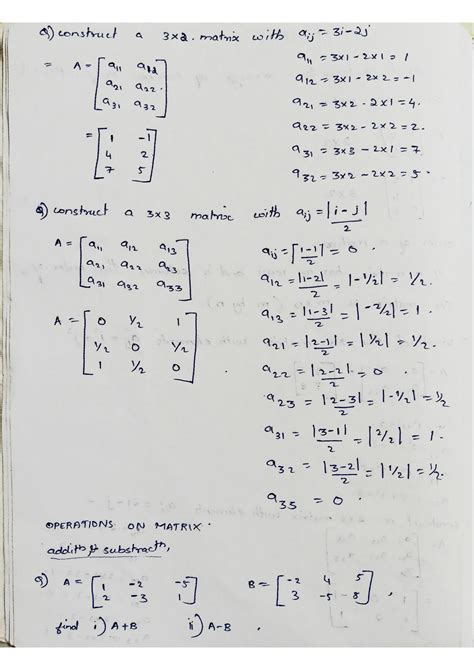 Q) construct a 3×2 matrix with aij = 3i-2j
= A = [a11 a12
a21 a22
a31 a32]
a11 = 3×1 - 2×1 = 1
a12 = 3×1 - 2×2 = -1
a21 = 3×2 - 2×1 = 4.
a22 = 3×2 - 2×2 = 2.
a31 = 3×3 - 2×1 = 7
a32 = 3×2 - 2×2 = 5.
= [1 -1
4 2
7 5]
Q) construct a 3×3 matrix with aij = |i-j|/2
A = [a11 a12 a13
a21 a22 a23
a31 a32 a33]
aij = |1-1|/2 = 0.
a12 = |1-2|/2 = |-1/2| = 1/2.
a13 = |1-3|/2 = |-2/2| = 1.
a21 = |2-1|/2 = |1/2| = 1/2.
a22 = |2-2|/2 = 0.
a23 = |2-3|/2 = |-1/2| = 1/2
a31 = |3-1|/2 = |2/2| = 1.
a32 = |3-2|/2 = |1/2| = 1/2.
a35 = 0.
A = [0 1/2 1
1/2 0 1/2
1 1/2 0]
OPERATIONS ON MATRIX.
Q) A = [1 -2 -5
2 -3 1]
B = [-2 4 5
3 -5 8],
find i) A+B ii) A-B.